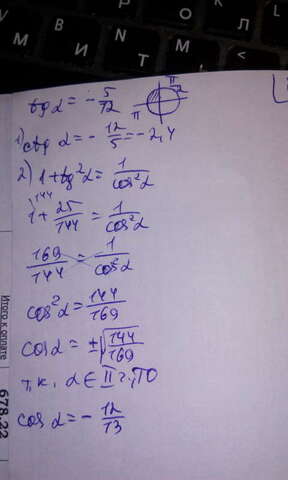 tg α = - 5/12
π/2
π
1) ctg α = - 12/5 = - 2,4
2) 1 + tg²α = 1/cos²α
1 + 25/144 = 1/cos²α
169/144 = 1/cos²α
cos²α = 144/169
cos α = ± √144/169
т.к. α ∈ II ч., то
cos α = - 12/13
Итого к оплате
678.22